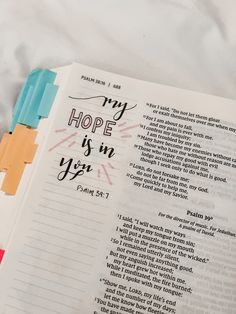 PSALM 38:16 | 588
my
HOPE
is in
You
Psalm 39:7
For I said, "Do not let them gloat
or exalt themselves over me when my
For I am about to fall,
and my pain is ever with me.
I confess my iniquity;
I am troubled by my sin.
Many have become my enemies without
those who hate me without reason are
Those who repay my good with evil
lodge accusations against me,
though I seek only to do what is good.
LORD, do not forsake me;
do not be far from me, my God.
Come quickly to help me,
my Lord and my Savior.
Psalm 39
For the director of music. For Jeduthun.
A psalm of David.
I said, "I will watch my ways
and keep my tongue from sin;
I will put a muzzle on my mouth
while in the presence of the wicked."
So I remained utterly silent,
not even saying anything good.
But my anguish increased;
my heart grew hot within me.
While I meditated, the fire burned;
then I spoke with my tongue:
"Show me, LORD, my life's end
and the number of my days;
let me know how fleeting
You have made my days